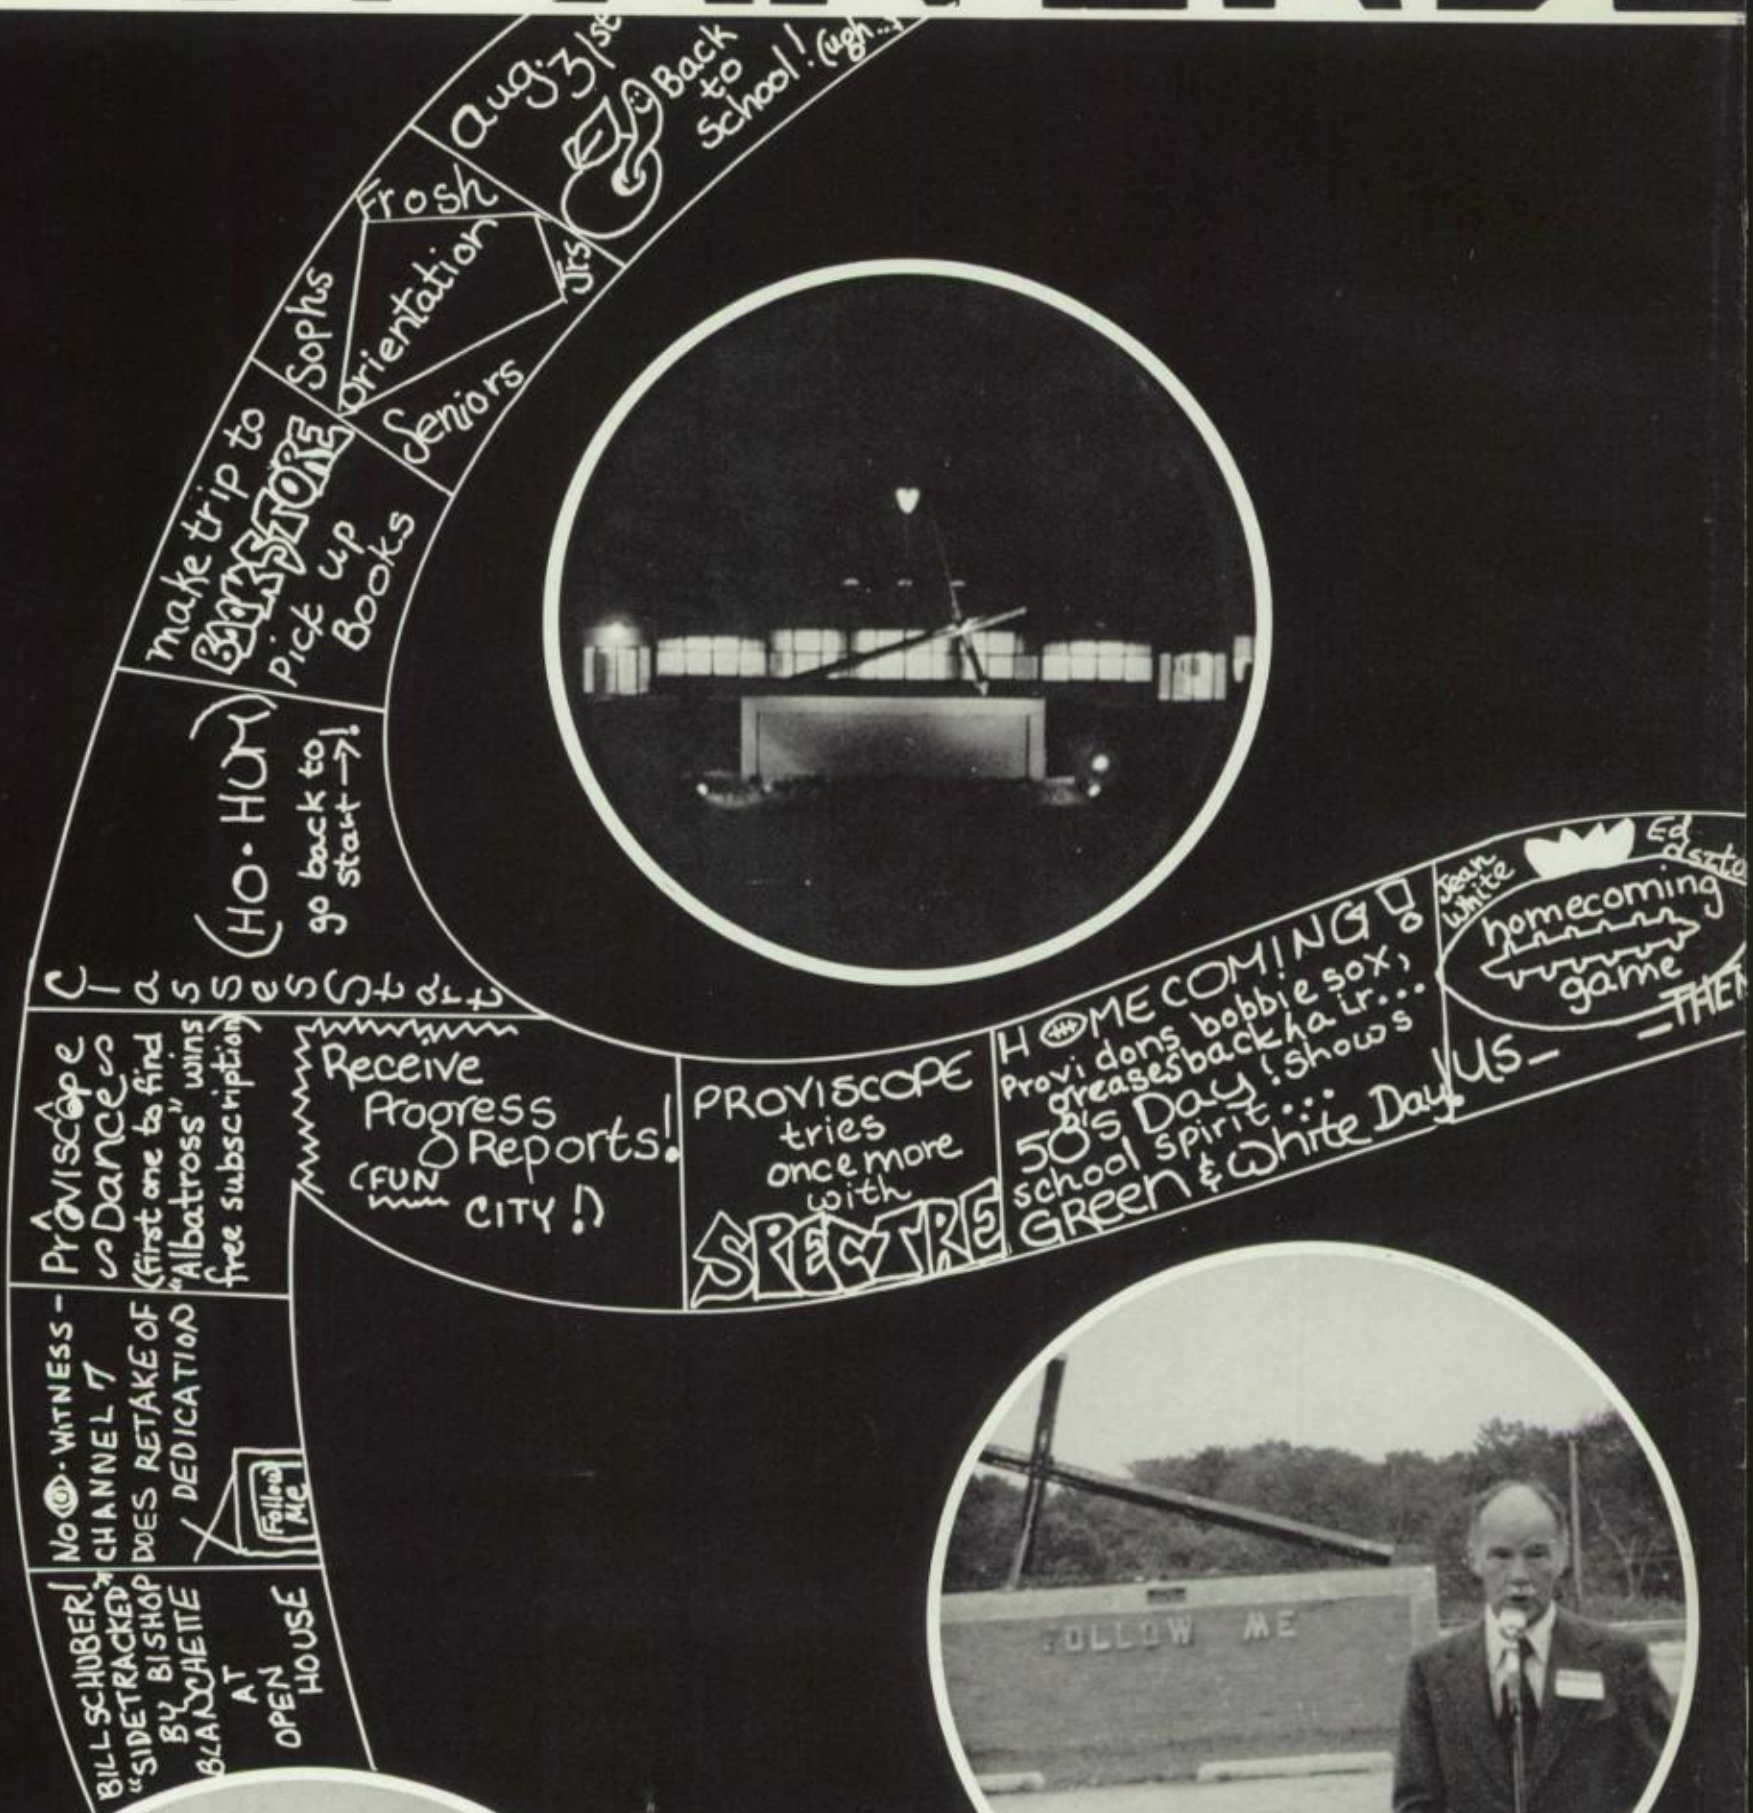 aug. 31st
Back
to
school! (ugh...)
Frosh
Sophs
Orientation
Jrs
Seniors
make trip to
BOOKSTORE
pick up
Books
(HO·HUM)
go back to
start→!
Classes Start
Receive
Progress
Reports!
(FUN
CITY!)
PROVISCOPE
tries
once more
with
SPECTRE
HOMECOMING!
Provi dons bobbie sox,
greases back hair...
50's Day! shows
school spirit...
GREEN & White Day!
Jean
White
Ed
homecoming
game
US-
-THEM
Proviscope
Dances
(first one to find
"Albatross" wins
free subscription)
No · WITNESS-
CHANNEL 7
DOES RETAKE OF
DEDICATION
Follow
Me
BILL SCHUBER!
"SIDETRACKED"
BY BISHOP
BLANCHETTE
AT
OPEN
HOUSE
FOLLOW ME